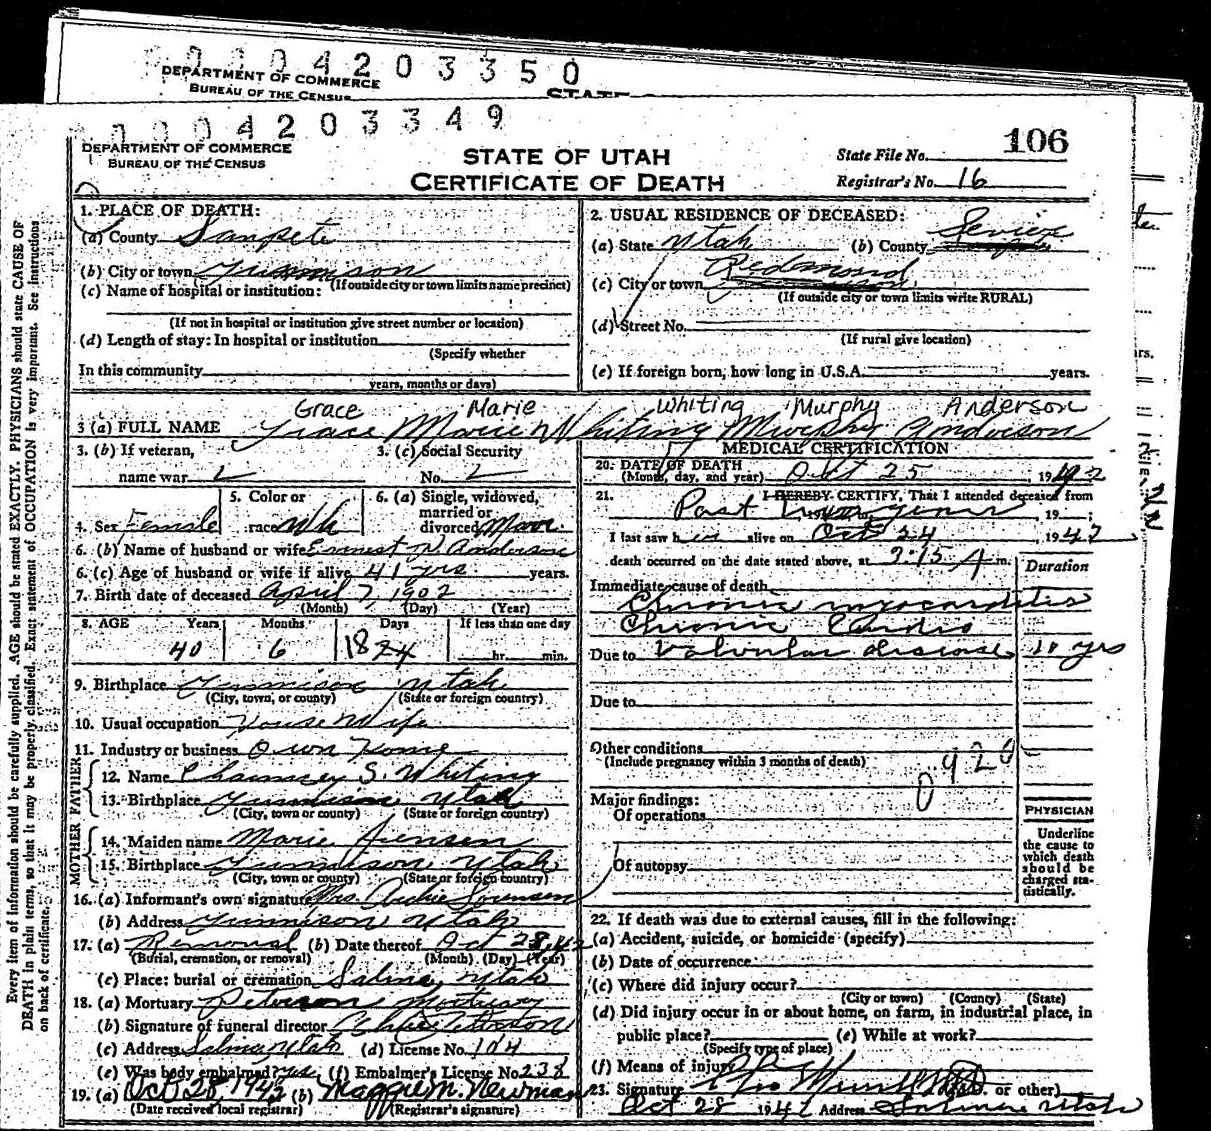 0004203350
DEPARTMENT OF COMMERCE
BUREAU OF THE CENSUS
STATE
0004203349
DEPARTMENT OF COMMERCE
BUREAU OF THE CENSUS
STATE OF UTAH
CERTIFICATE OF DEATH
State File No. 106
Registrar's No. 16
Every item of information should be carefully supplied. AGE should be stated EXACTLY. PHYSICIANS should state CAUSE OF
DEATH in plain terms, so that it may be properly classified. Exact statement of OCCUPATION is very important. See instructions
on back of certificate.
1. PLACE OF DEATH:
(a) County Sanpete
(b) City or town Gunnison
(If outside city or town limits name precinct)
(c) Name of hospital or institution:
(If not in hospital or institution give street number or location)
(d) Length of stay: In hospital or institution
(Specify whether
In this community
years, months or days)
2. USUAL RESIDENCE OF DECEASED:
(a) State Utah (b) County Sevier
(c) City or town Redmond
(If outside city or town limits write RURAL)
(d) Street No.
(If rural give location)
(e) If foreign born, how long in U.S.A. years.
Grace Marie Whiting Murphy Anderson
3 (a) FULL NAME Grace Marie Whiting Murphy Anderson
3. (b) If veteran, 3. (c) Social Security
name war No.
4. Sex Female 5. Color or race Wh 6. (a) Single, widowed, married or divorced Marr.
6. (b) Name of husband or wife Ernest N. Anderson
6. (c) Age of husband or wife if alive 41 yrs. years.
7. Birth date of deceased April 7 1902
(Month) (Day) (Year)
8. AGE Years Months Days If less than one day
40 6 18 24 hr. min.
9. Birthplace Gunnison Utah
(City, town, or county) (State or foreign country)
10. Usual occupation House Wife
11. Industry or business Own Home
FATHER
12. Name Chauncey S. Whiting
13. Birthplace Gunnison Utah
(City, town or county) (State or foreign country)
MOTHER
14. Maiden name Marie Jensen
15. Birthplace Gunnison Utah
(City, town or county) (State or foreign country)
16. (a) Informant's own signature Mrs. Archie Sorensen
(b) Address Gunnison Utah
17. (a) Removal (b) Date thereof Oct 28, 42
(Burial, cremation, or removal) (Month) (Day) (Year)
(c) Place: burial or cremation Salina, Utah
18. (a) Mortuary Peterson Mortuary
(b) Signature of funeral director Peterson
(c) Address Salina, Utah (d) License No. 104
(e) Was body embalmed? yes (f) Embalmer's License No. 238
19. (a) Oct 28, 1942 (b) Maggie M. Newman
(Date received local registrar) (Registrar's signature)
MEDICAL CERTIFICATION
20. DATE OF DEATH
(Month, day, and year) Oct 25, 1942
21. I HEREBY CERTIFY, That I attended deceased from
Past years, 19 ;
I last saw her alive on Oct 24, 1942
death occurred on the date stated above, at 2:15 A m.
Duration
Immediate cause of death
Chronic myocarditis
Chronic Cardio
Due to Valvular disease 10 yrs
Due to
Other conditions
(Include pregnancy within 3 months of death)
Major findings:
Of operations
Of autopsy
PHYSICIAN
Underline
the cause to
which death
should be
charged sta-
tistically.
22. If death was due to external causes, fill in the following:
(a) Accident, suicide, or homicide (specify)
(b) Date of occurrence
(c) Where did injury occur?
(City or town) (County) (State)
(d) Did injury occur in or about home, on farm, in industrial place, in
public place? (e) While at work?
(Specify type of place)
(f) Means of injury
23. Signature or other)
Oct 28 1942 Address Salina Utah